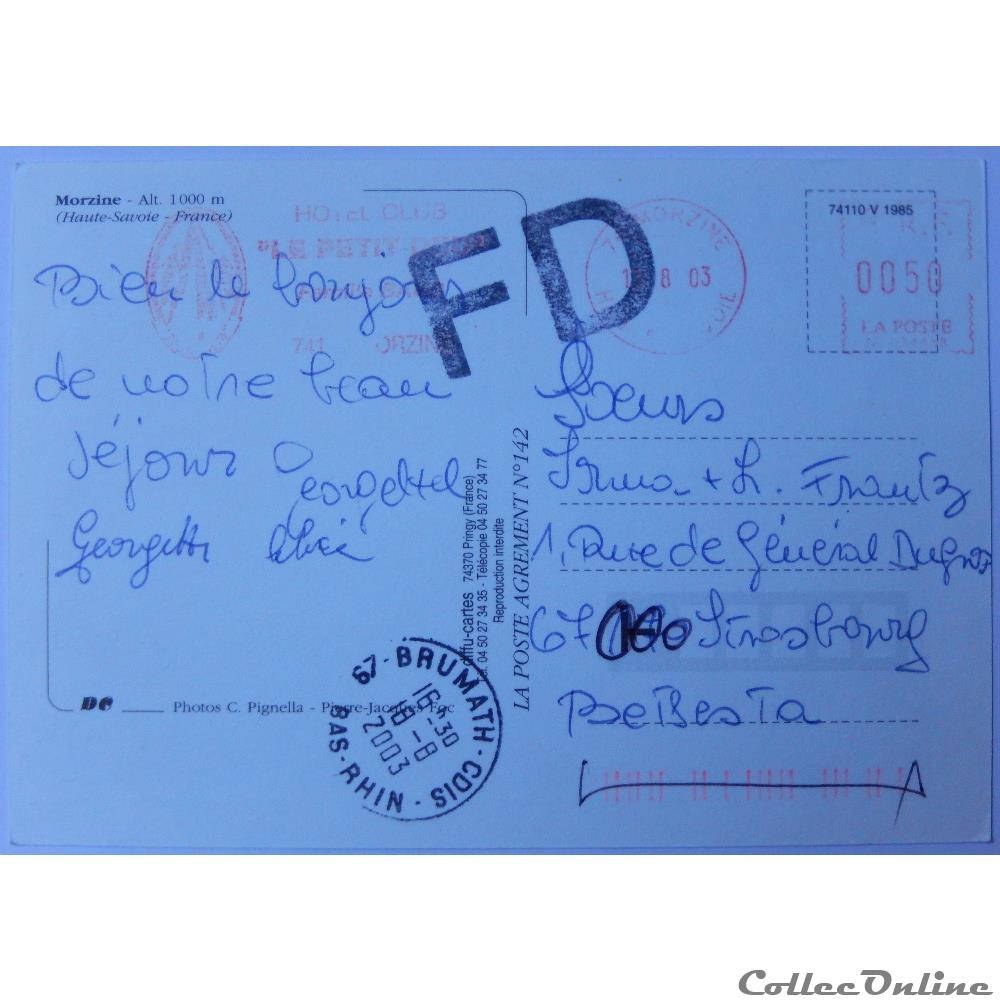 Morzine - Alt. 1000 m
(Haute-Savoie - France)
HOTEL CLUB
"LE PETIT
741 ORZIN
FD
MORZINE
8 03
74110 V 1985
0050
LA POSTE
Bien le bonjour
de notre beau
séjour Georgettel
Georgette
diffu-cartes 74370 Pringy (France)
Tél. 04 50 27 34 35 - Télécopie 04 50 27 34 77
Reproduction interdite
LA POSTE AGREMENT N° 142
Soeurs
Irma + L. Frantz
1, Rue de Général
67 Strasbourg
DC
Photos C. Pignella - Pierre-Jacques Foc
67 - BRUMATH - CDIS
16-30
18-8
2003
BAS-RHIN
CollecOnline